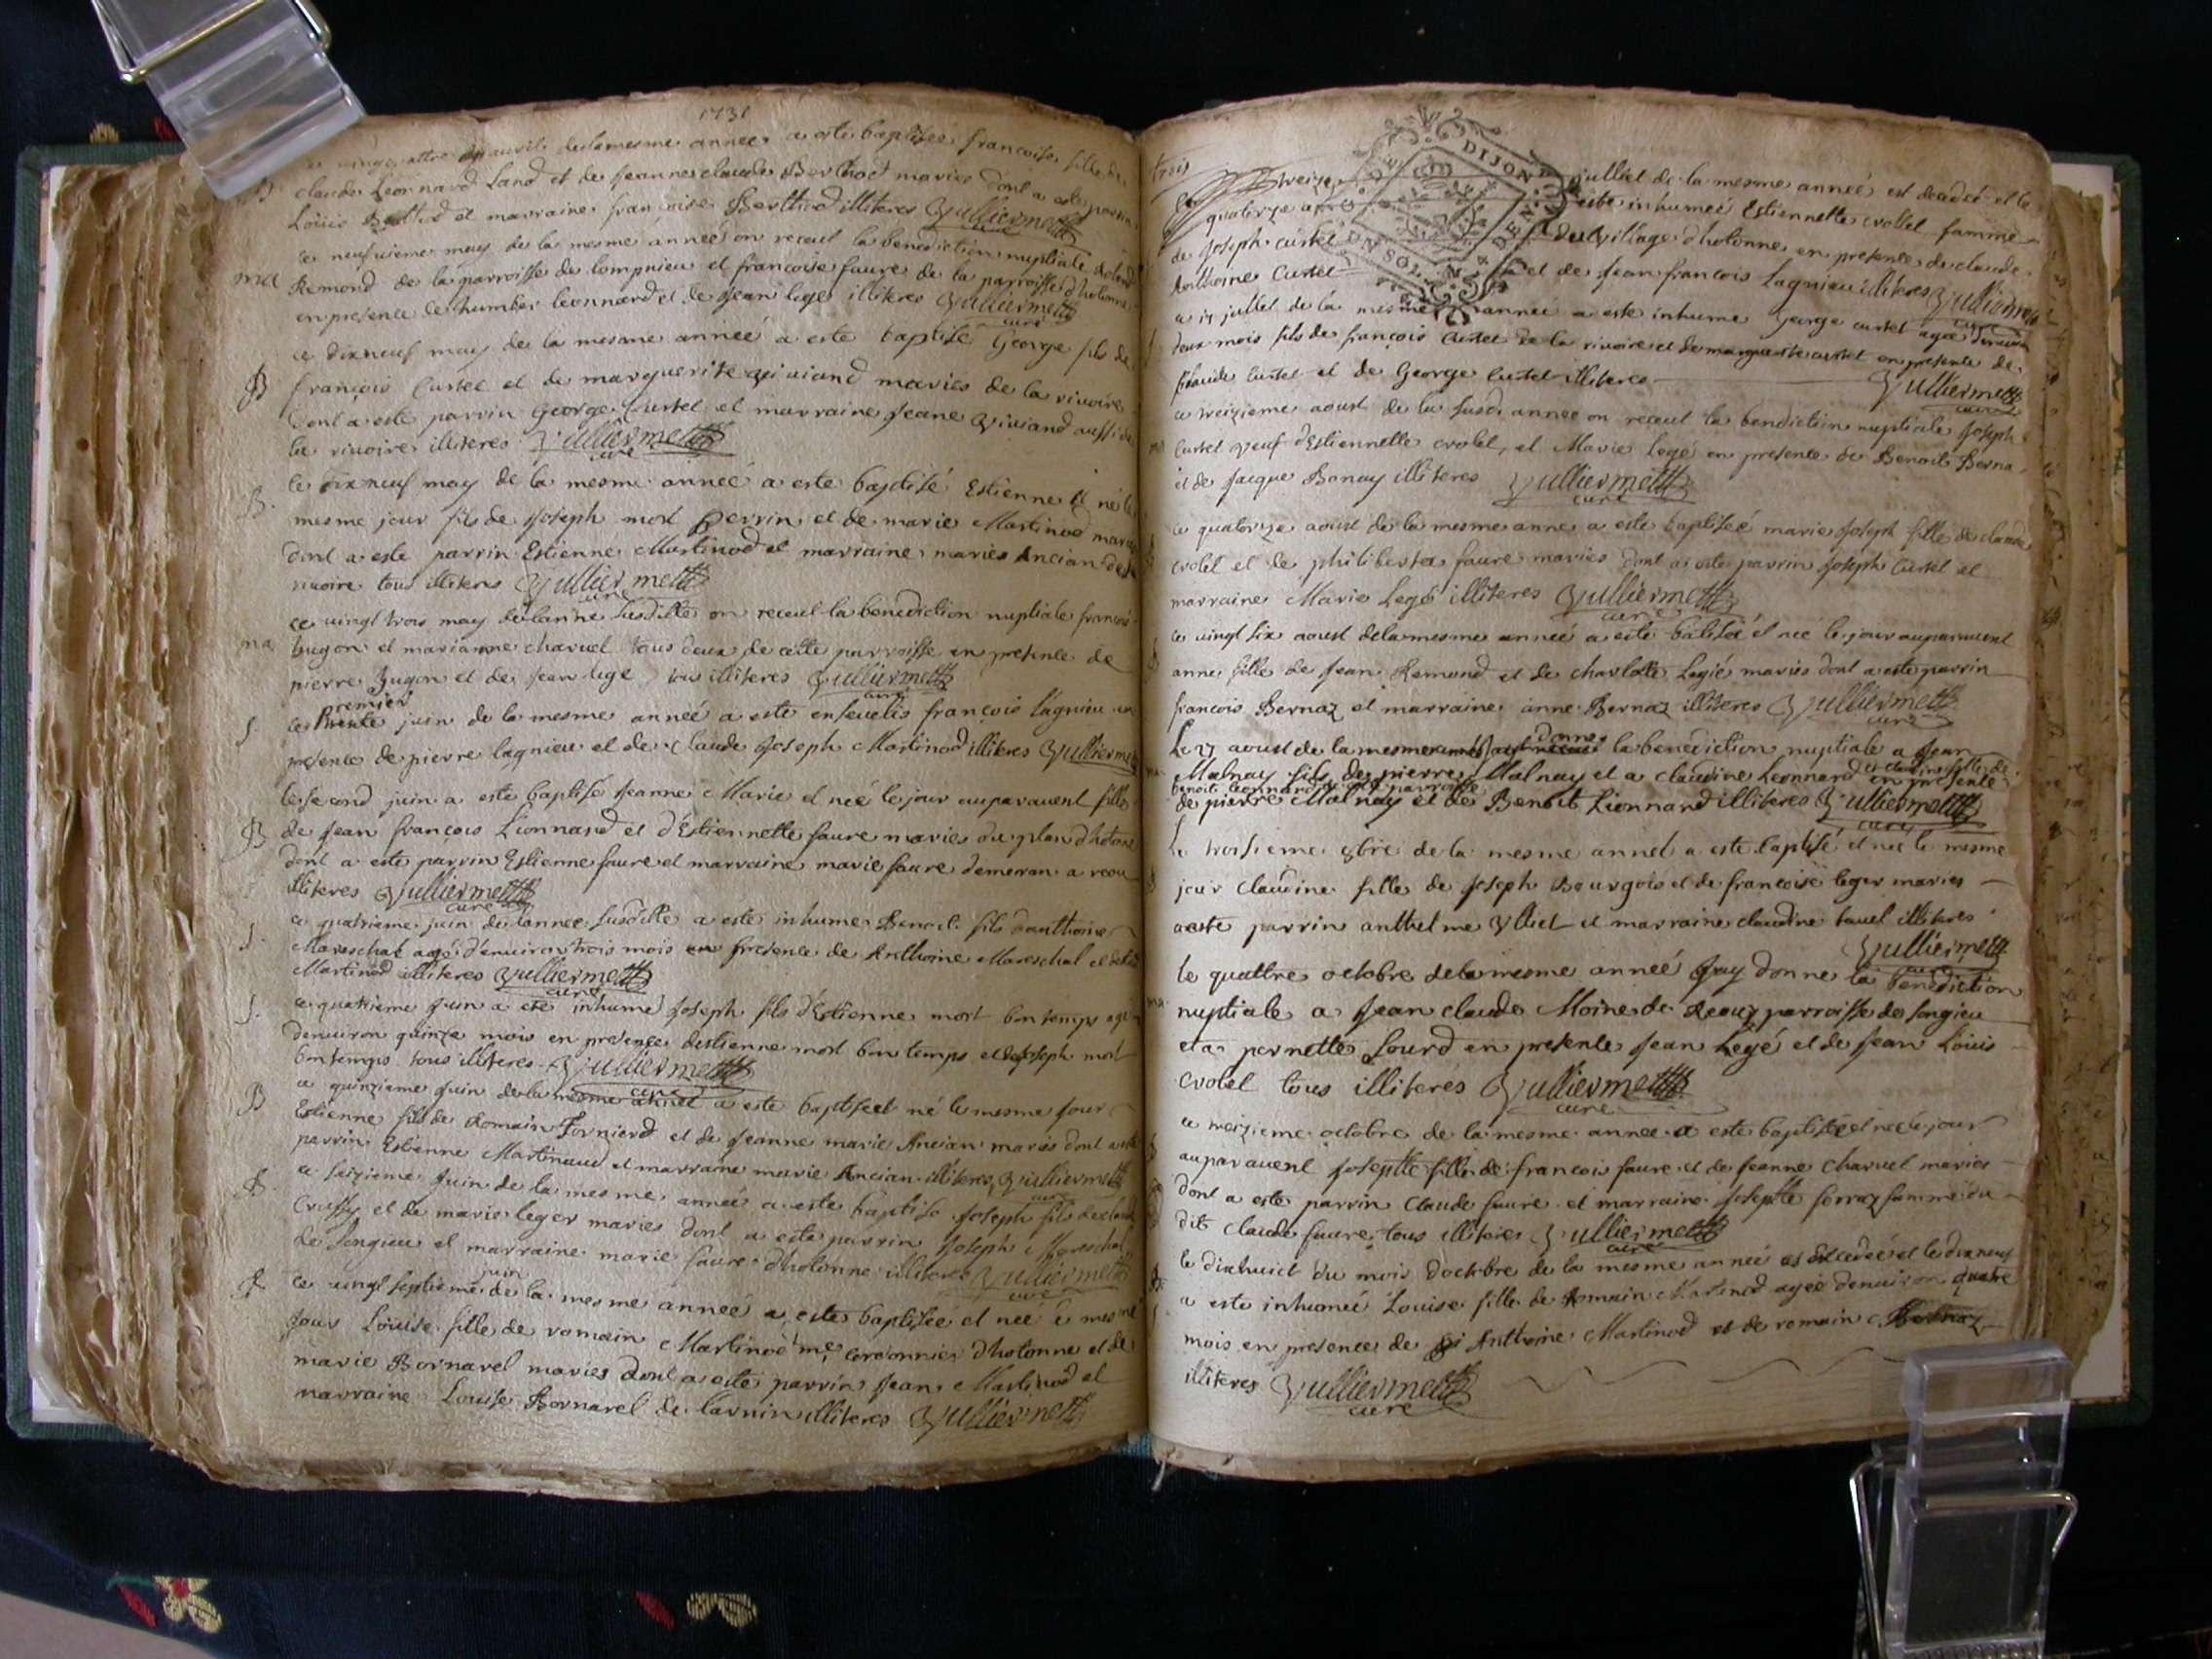 1731
avril de la mesme année a este baptisée francoise fille de
B claude Leonnard Land et de Jeanne claude Berthod mariés dont a este parrin
Louis Berthod et marraine francoise Berthod illiteres Vulliermette curé
ce neufvieme may de la mesme année on receut la benediction nuptiale
ma Remond de la parroisse de lompnieu et francoise faure de la parroisse d'hotonne
en presence de humber leonnard et de Jean lege illiteres Vulliermette curé
ce dixneuf may de la mesme année a este baptisé George fils de
B françois Curtet et de marguerite viviand mariés de la rivoire
dont a este parrin George Curtet et marraine Jeane Viviand aussi de
la rivoire illiteres Vulliermette curé
le dixneuf may de la mesme année a este baptisé Estienne né le
B. mesme jour fils de Joseph mort perrin et de marie Martinod mariés
dont a este parrin Estienne Martinod et marraine marie Ancian de la
rivoire tous illiteres Vulliermette curé
ce vingt trois may de lanne susditte on receut la benediction nuptiale francois
ma hugon et marianne charvet tous deux de cette parroisse en presence de
pierre hugon et de Jean lege tous illiteres Vulliermette curé
S. ce premier juin de la mesme année a este ensevelis françois lagnieu en
presence de pierre lagnieu et de Claude Joseph Martinod illiteres Vulliermette
le second juin a este baptisé Jeanne Marie et née le jour auparavent fille
B de Jean françois Lionnard et d'Estiennette faure mariés du plan d'hotonne
dont a este parrin Estienne faure et marraine marie faure demeran a
illiteres Vulliermette curé
ce quatrieme juin de lannee susditte a este inhume Benoit fils d'anthoine
S. Mareschal agé d'environ trois mois en presence de Anthoine Mareschal et de
Martinod illiteres Vulliermette curé
S. ce quatrieme juin a ete inhumé Joseph fils d'Estienne mort bon temps agé
denviron quinze mois en presence destienne mort bon temps et de Joseph mort
bon temps tous illiteres Vulliermette curé
ce quinzieme juin de la mesme année a este baptisé et né le mesme jour
B Estienne fils de Romain Fornierd et de Jeanne marie Ancian mariés dont a este
parrin Estienne Martinaud et marraine marie Ancian illiteres Vulliermette curé
ce seizieme Juin de la mesme année a este baptisé Joseph fils de claude
B. Crussy et de marie leger mariés dont a este parrin Joseph Mareschal
de Songieu et marraine marie faure d'hotonne illiteres Vulliermette curé
B ce vingt septieme juin de la mesme année a este baptisée et née le mesme
jour Louise fille de romain Martinod me cordonnier d'hotonne et de
marie Bornarel mariés dont a este parrin Jean Martinod et
marraine Louise Bornarel de illiteres Vulliermette
trois
Le treize juillet de la mesme année est decedée et le
quatorze a este inhumée Estiennette crollet famme
de Joseph curtet du village d'hotonne en presence de claude
Anthoine Curtet et de Jean françois Lagnieu illiteres Vulliermette
DIJON
ce juillet de la mesme année a este inhume George curtet agé d'environ
deux mois fils de françois Curtet de la rivoire et de marguerite curtet en presence de
Claude Curtet et de George Curtet illiteres Vulliermette curé
ce treizieme aoust de la susd. annee on receut la benediction nuptiale Joseph
Curtet veuf d'Estiennette crolet, et Marie Legé en presence de Benoit
et de Jacque Bonay illiteres Vulliermette curé
ce quatorze aoust de la mesme anne a este baptisée marie Joseph fille de claude
crolet et de philiberta faure mariés dont a este parrin Joseph Curtet et
marraine Marie Legé illiteres Vulliermette curé
ce vingt six aoust de la mesme année a este batisé et née le jour auparavent
anne fille de Jean Remond et de charlotte Legié mariés dont a este parrin
francois Bernaz et marraine anne Bernaz illiteres Vulliermette curé
Le 27 aoust de la mesme année donné la benediction nuptiale a Jean
Malnay fils de pierre Malnay et a claudine Leonnard fille de
benoit leonnard de cette parroisse en presence
de pierre Malnay et de Benoit Lionnard illiteres Vulliermette curé
Le troisieme de la mesme année a este baptisé et née le mesme
jour claudine fille de Joseph Bourgois et de francoise leger mariés
a este parrin anthelme et marraine claudine tavel illiteres
Vulliermette curé
le quattre octobre de la mesme année Jay donne la benediction
ma nuptiale a Jean claude Moine de parroisse de songieu
et a pernette Lourd en presence Jean Legé et de Jean Louis
crolet tous illiteres Vulliermette curé
ce treizieme octobre de la mesme annee a este baptisée et née le jour
auparavent Josephte fille de francois faure et de Jeanne charvet mariés
dont a este parrin Claude faure et marraine Josephte famme du
dit Claude faure tous illiteres Vulliermette curé
le dixhuict du mois d'octobre de la mesme année est decedée et le dixneuf
a este inhumée Louise fille de Romain Martinod agée denviron quatre
mois en presence de Anthoine Martinod et de romain
illiteres Vulliermette curé